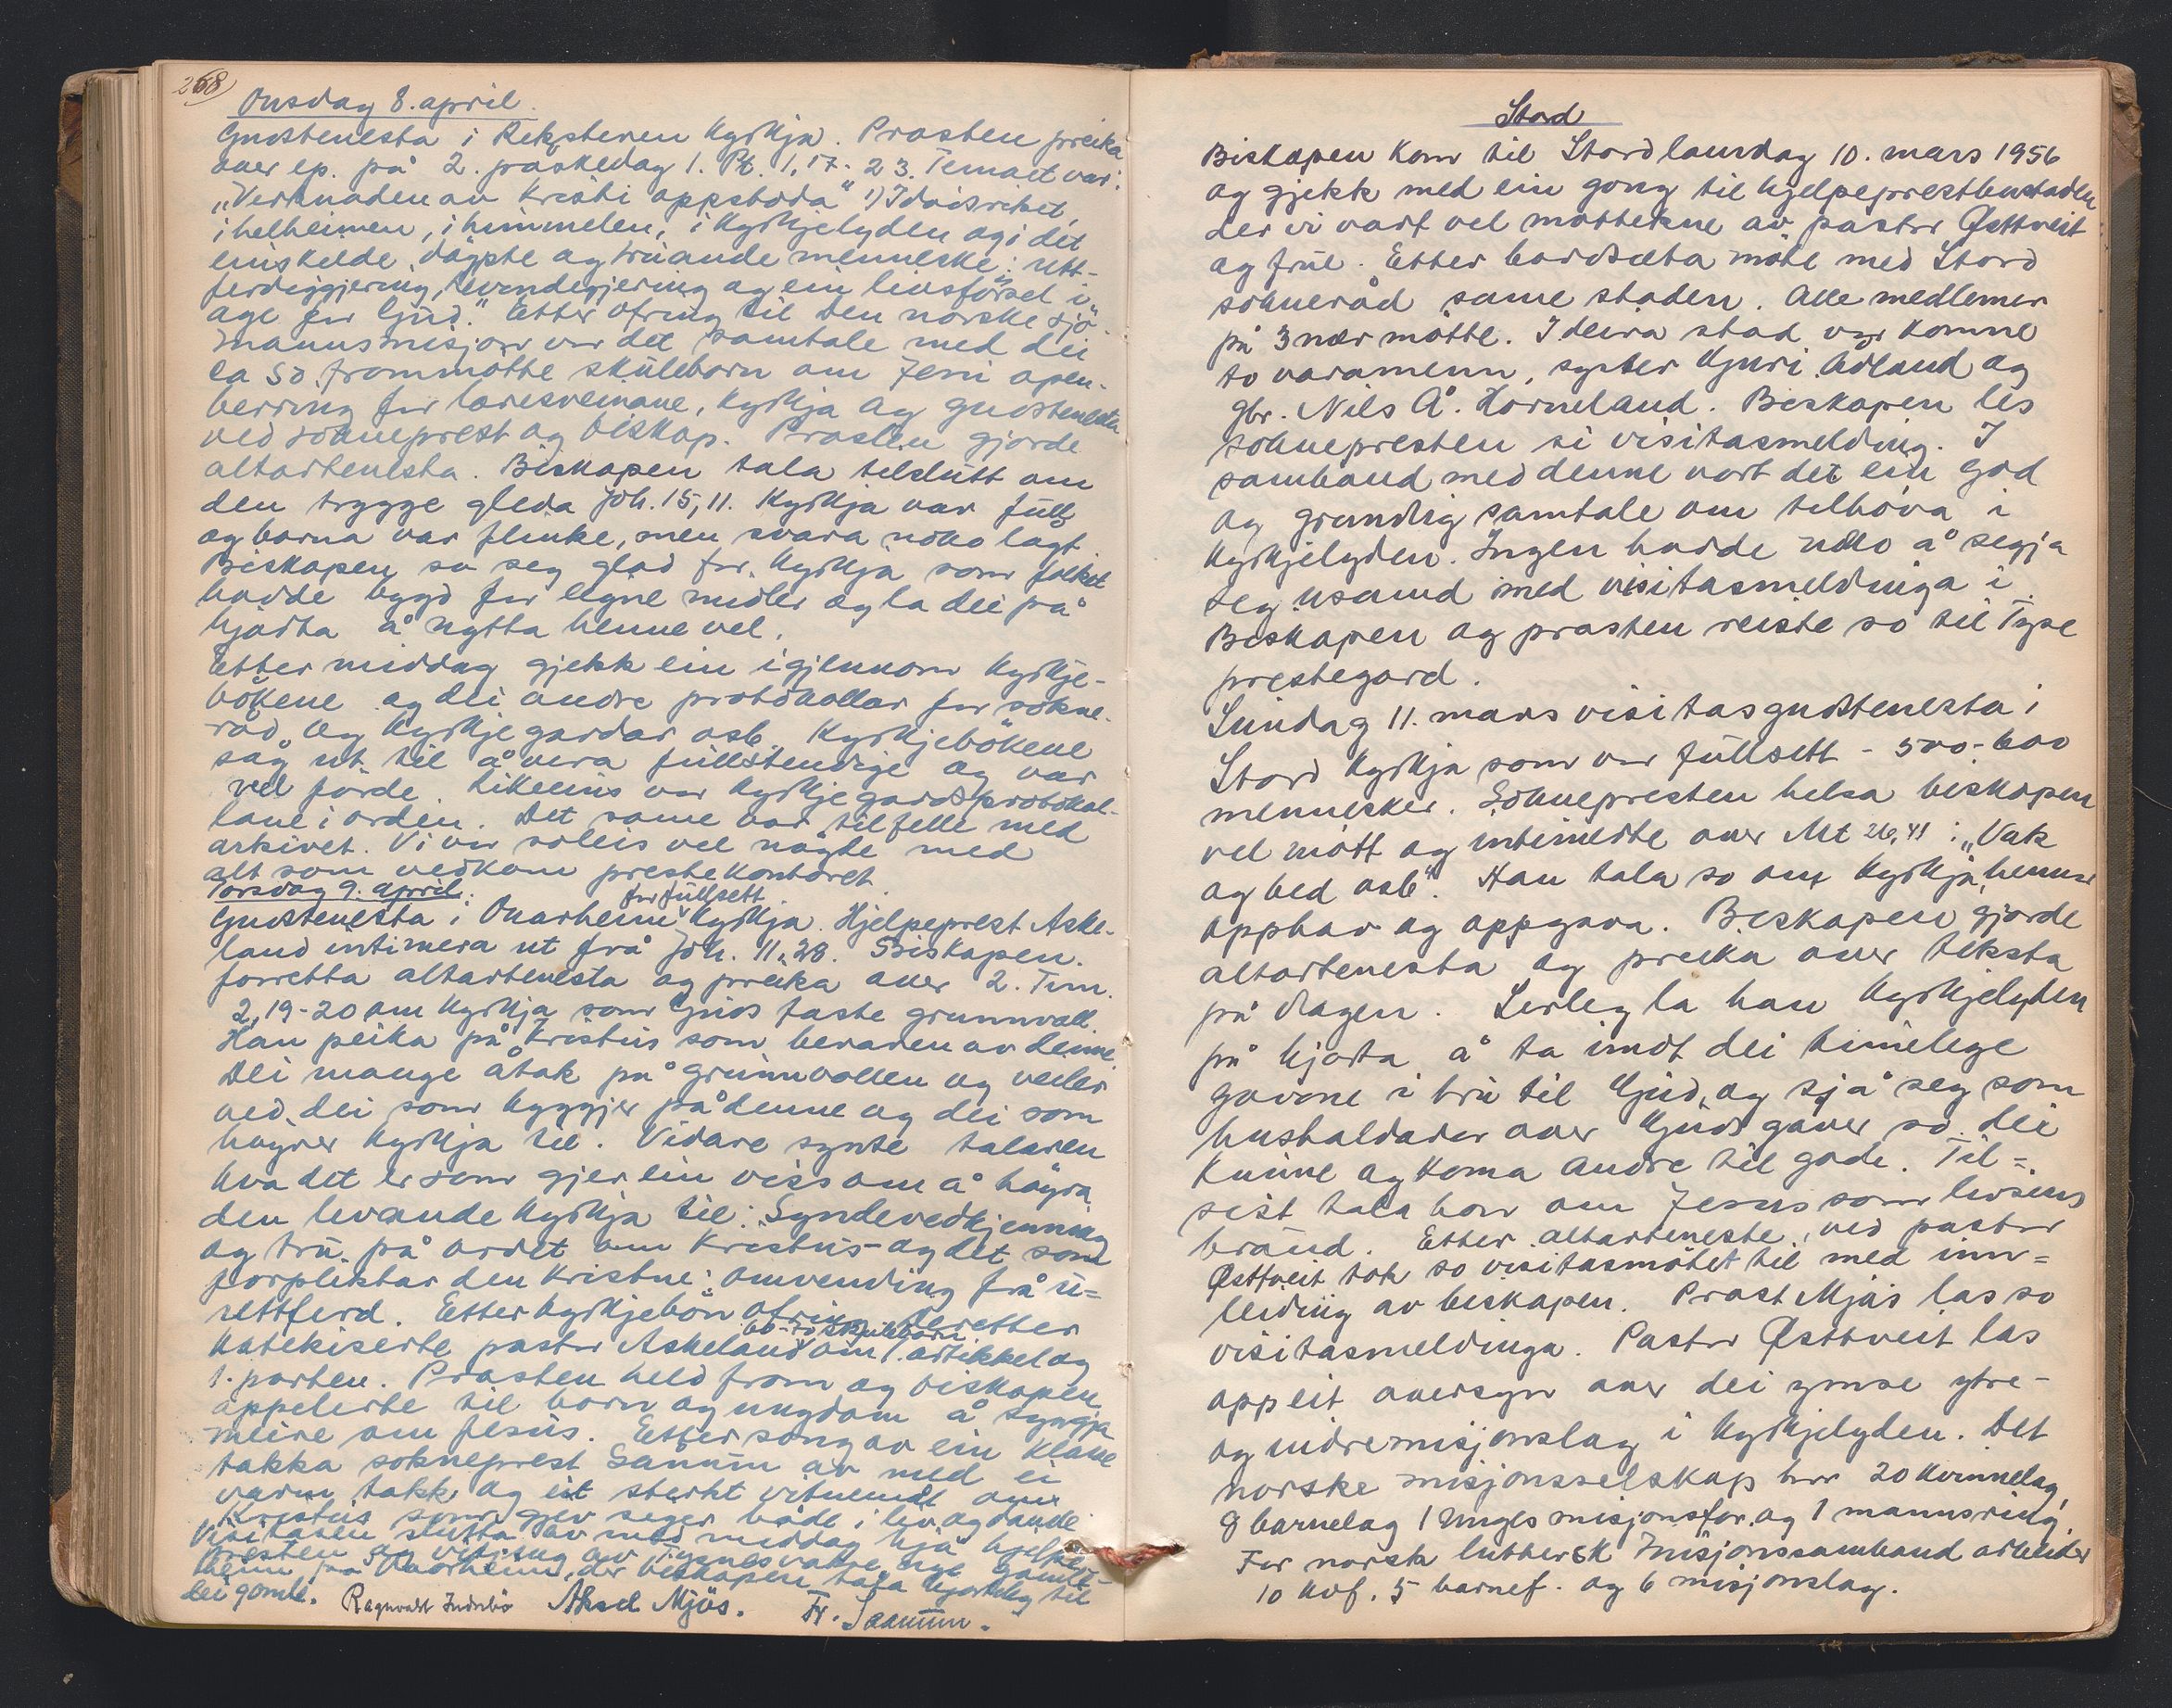 268
Onsdag 8. april.
Gudstenesta i Reksteren kyrkja. Prosten preika
over ep. på 2. påskedag 1. Pt. 1,17-23. Temaet var:
"Verknaden av Kristi oppstoda" 1) I dødsriket,
i helheimen, i himmelen, i kyrkjelyden og i det
einskilde døypte og truande menneske: Rett-
ferdiggjering, levendegjering og ein livsførsel i
age for Gud." Etter ofring til Den norske sjø-
mannsmisjon var det samtale med dei
ca 50 frammøtte skuleborn om Jesu open-
berring for læresveinane, kyrkja og gudstenesta
ved sokneprest og biskop. Prosten gjorde
altartenesta. Biskopen tala tilslutt om
den trygge gleda Joh. 15,11. Kyrkja var full
og borna var flinke, men svara noko lågt.
Biskopen sa seg glad for kyrkja som folket
hadde bygd for eigne midler og la dei på
hjarta å nytta henne vel.
Etter middag gjekk ein igjennom kyrkje-
bökene og dei andre protokollar for sokne-
råd og kyrkjegardar osb. Kyrkjebökene
såg ut til å vera fullstendige og var
vel förde. Likeeins var kyrkjegardsprotokol-
lane i orden. Det same var tilfelle med
arkivet. Vi var soleis vel nögde med
alt som vedkom prestekontoret.
Torsdag 9. april:
for fullsett
Gudstenesta i Onarheim kyrkja. Hjelpeprest Aske-
land intimera ut frå Joh. 11,28. Biskopen
forretta altartenesta og preika over 2. Tim.
2,19-20 om kyrkja som Guds faste grunnvoll.
Han peika på Kristus som beraren av denne.
Dei mange åtak på grunnvollen og veiler
ved dei som byggjer på denne og dei som
høyrer kyrkja til. Vidare synte talaren
kva det er som gjer ein viss om å høyra
den levande kyrkja til: Syndevedkjenning
og tru på ordet om Kristus - og det som
forpliktar den kristne: omvending frå u=
rettferd. Etter kyrkjebön ofring. Deretter
60-70 skuleborn
katekiserte pastor Askeland om 1. artikkel og
1. parten. Prosten held fram og biskopen
appelerte til born og ungdom å syngja
meire om Jesus. Etter song av ein klasse
takka sokneprest Sanum av med ei
varm takk og eit sterkt vitnemål om
Kristus som gjev siger både i liv og daude
Visitasen slutta av med middag hjå hjelpe-
presten og vitjing av Tysnes vakre nye gamle-
heim på Onarheim, der biskopen tala hjarteleg til
dei gamle. Ragnvald Indrebø Aksel Mjøs. Fr. Saanum.
Stord
Biskopen kom til Stord laurdag 10. mars 1956
og gjekk med ein gong til hjelpeprestbustaden
der vi vart vel mottekne av pastor Østtveit
og frue. Etter bordsæta møte med Stord
sokneråd same staden. Alle medlemer
på 3 nær møtte. I deira stad var komne
to varamenn, syster Guri Ådland og
gbr. Nils Å. Horneland. Biskopen les
soknepresten si visitasmelding. I
samband med denne vart det ein god
og grundig samtale om tilhøva i
kyrkjelyden. Ingen hadde noko å segja
seg usamd med visitasmeldinga i.
Biskopen og prosten reiste so til Tyse
prestegard.
Sundag 11. mars visitasgudstenesta i
Stord kyrkja som var fullsett - 500-600
mennesker. Soknepresten helsa biskopen
vel mött og intimerte over Mt 26,41: "Vak
og bed osb". Han tala so om kyrkja, hennar
opphav og oppgava. Biskopen gjorde
altartenesta og preika over teksta
på dagen. Serleg la han kyrkjelyden
på hjarta å ta imot dei timelege
gåvone i tru til Gud, og sjå seg som
hushaldarar over Guds gåver so dei
kunne og koma andre til gode. Til=
sist tala han om Jesus som livsens
braud. Etter altarteneste ved pastor
Østtveit tok so visitasmötet til med inn=
leiding av biskopen. Prost Mjøs las so
visitasmeldinga. Pastor Østtveit las
opp eit oversyn over dei ymse ytre-
og indremisjonslag i kyrkjelyden. Det
norske misjonsselskap har 20 kvinnelag,
9 barnelag 1 Unges misjonsfor. og 1 mannsring.
For norsk luthersk Misjonssamband arbeider
10 kvf. 5 barnef. og 6 misjonslag.